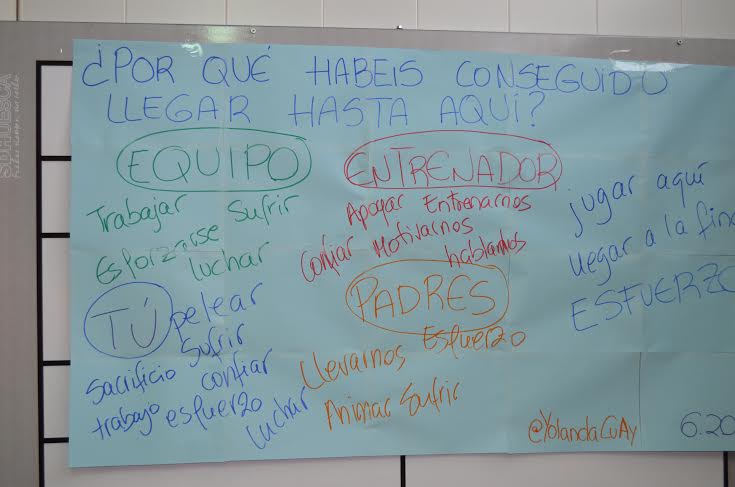 ¿POR QUÉ HABEIS CONSEGUIDO
LLEGAR HASTA AQUÍ?
EQUIPO
Trabajar Sufrir
Esforzarse luchar
ENTRENADOR
Apoyar Entrenarnos
Confiar Motivarnos
hablarnos
jugar aquí
llegar a la fina
ESFUERZO
TÚ
pelear
Sufrir
Sacrificio confiar
trabajo esfuerzo
luchar
PADRES
Llevarnos Esfuerzo
Animar Sufrir
@YolandaCuAy
6:20
SDHUESCA